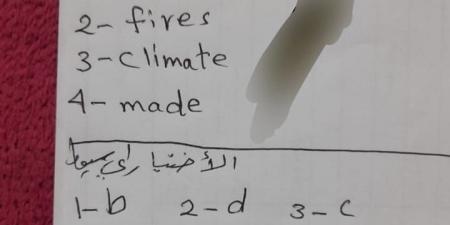 2- fires
3- climate
4- made
الأختيار
1- b 2- d 3- c